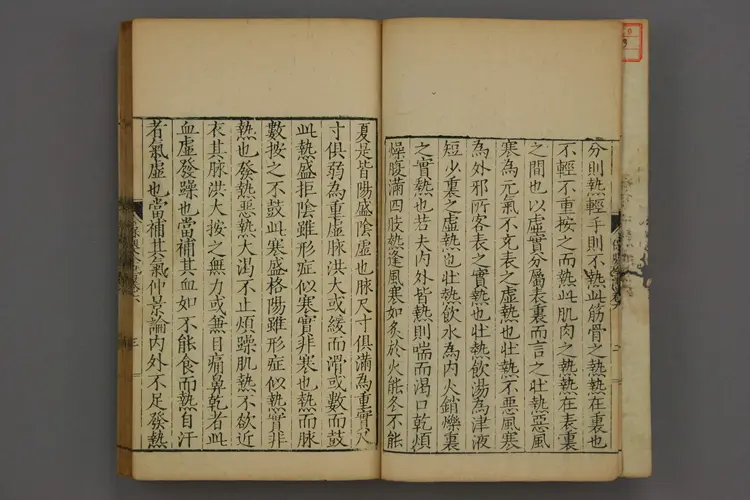 分則熱輕手則不熱此筋骨之熱熱在裏也
不輕不重按之而熱此肌肉之熱熱在表裏
之間也以虛實分屬表裏而言之壯熱惡風
寒為元氣不充表之虛熱也壯熱不惡風寒
為外邪所客表之實熱也壯熱飲湯為津液
短少裏之虛熱也壯熱飲水為内火銷爍裏
之實熱也若夫内外皆熱則喘而渴口乾煩
燥腹滿四肢熱逢風寒如炙於火能冬不能
夏是皆陽盛陰虛也脉尺寸俱滿為重實尺
寸俱弱為重虛脉洪大或緩而滑或數而鼓
此熱盛拒陰雖形症似寒實非寒也熱而脉
數按之不鼓此寒盛格陽雖形症似熱實非
熱也發熱惡熱大渴不止煩躁肌熱不欲近
衣其脉洪大按之無力或無目痛鼻乾者此
血虛發躁也當補其血如不能食而熱自汗
者氣虛也當補其氣仲景論内外不足發熱